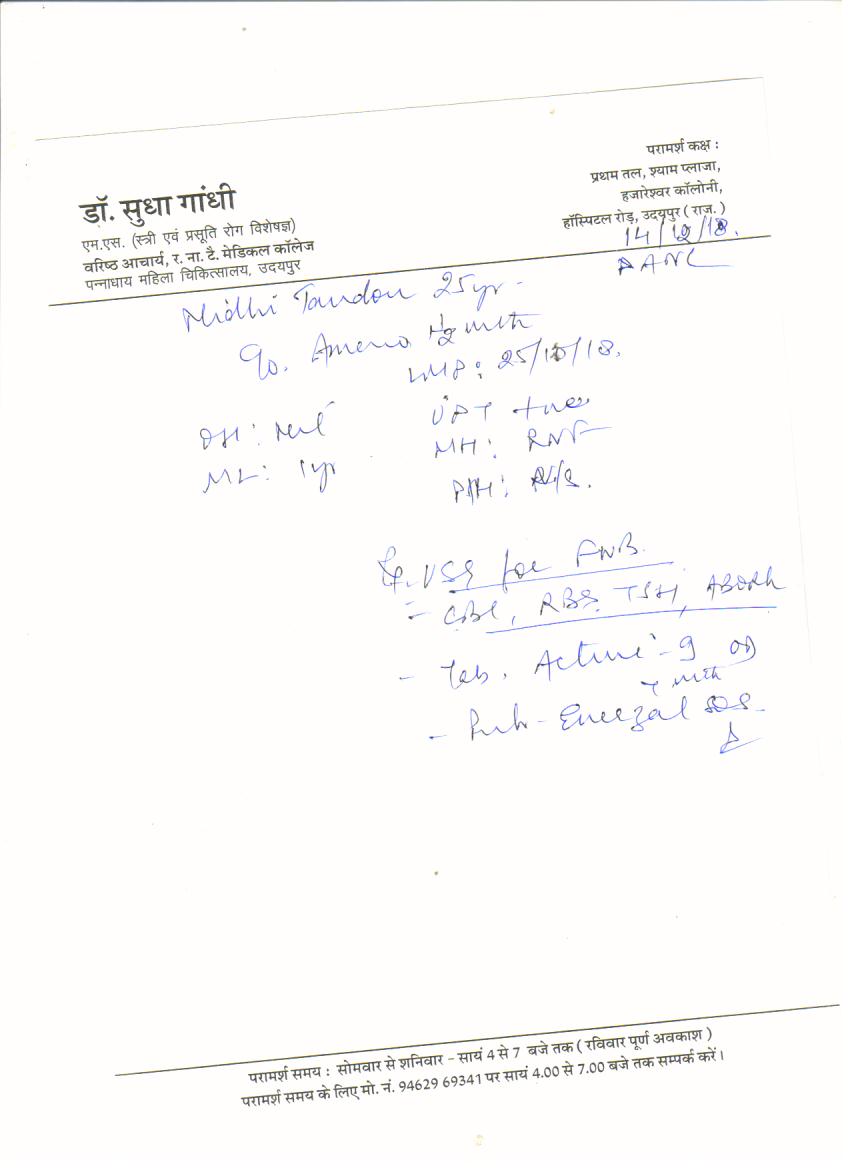 डॉ. सुधा गांधी
एम.एस. (स्त्री एवं प्रसूति रोग विशेषज्ञ)
वरिष्ठ आचार्य, र. ना. टै. मेडिकल कॉलेज
पन्नाधाय महिला चिकित्सालय, उदयपुर
परामर्श कक्ष :
प्रथम तल, श्याम प्लाजा,
हजारेश्वर कॉलोनी,
हॉस्पिटल रोड़, उदयपुर ( राज. )
14/12/18.
ANC
Nidhi Tandon 25yr -
C/o. Ameno 1½ mth
LMP: 25/10/18.
OH: Nul
UPT +ve
ML: 1yr
MH: RNF
P/H: N/S.
USG for FWB.
- CBC, RBS, TSH, ABORh
- Tab. Active-9 OD
mth
- SOS -
परामर्श समय : सोमवार से शनिवार - सायं 4 से 7 बजे तक ( रविवार पूर्ण अवकाश )
परामर्श समय के लिए मो. नं. 94629 69341 पर सायं 4.00 से 7.00 बजे तक सम्पर्क करें।